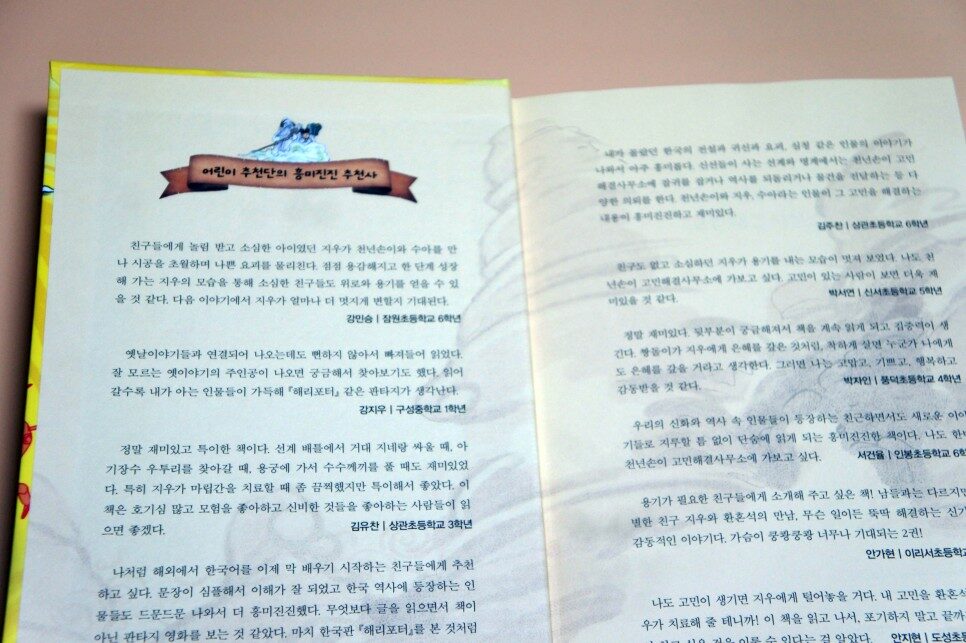 어린이 추천단의 흥미진진 추천사
친구들에게 놀림 받고 소심한 아이였던 지우가 천년손이와 수아를 만
나 시공을 초월하며 나쁜 요괴를 물리친다. 점점 용감해지고 한 단계 성장
해 가는 지우의 모습을 통해 소심한 친구들도 위로와 용기를 얻을 수 있
을 것 같다. 다음 이야기에서 지우가 얼마나 더 멋지게 변할지 기대된다.
강민승 | 잠원초등학교 6학년
옛날이야기들과 연결되어 나오는데도 뻔하지 않아서 빠져들어 읽었다.
잘 모르는 옛이야기의 주인공이 나오면 궁금해서 찾아보기도 했다. 읽어
갈수록 내가 아는 인물들이 가득해 『해리포터』 같은 판타지가 생각난다.
강지우 | 구성중학교 1학년
정말 재미있고 특이한 책이다. 선계 배틀에서 거대 지네랑 싸울 때, 아
기장수 우투리를 찾아갈 때, 용궁에 가서 수수께끼를 풀 때도 재미있었
다. 특히 지우가 마립간을 치료할 때 좀 끔찍했지만 특이해서 좋았다. 이
책은 호기심 많고 모험을 좋아하고 신비한 것들을 좋아하는 사람들이 읽
으면 좋겠다.
김유찬 | 상관초등학교 3학년
나처럼 해외에서 한국어를 이제 막 배우기 시작하는 친구들에게 추천
하고 싶다. 문장이 심플해서 이해가 잘 되었고 한국 역사에 등장하는 인
물들도 드문드문 나와서 더 흥미진진했다. 무엇보다 글을 읽으면서 책이
아닌 판타지 영화를 보는 것 같았다. 마치 한국판 『해리포터』를 본 것처럼
내가 몰랐던 한국의 전설과 귀신과 요괴, 심청 같은 인물의 이야기가
나와서 아주 흥미롭다. 신선들이 사는 선계와 명계에서는 천년손이 고민
해결사무소에 잠귀를 잡거나 역사를 되돌리거나 물건을 전달하는 등 다
양한 의뢰를 한다. 천년손이와 지우, 수아라는 인물이 그 고민을 해결하는
내용이 흥미진진하고 재미있다.
김주찬 | 상관초등학교 6학년
친구도 없고 소심하던 지우가 용기를 내는 모습이 멋져 보였다. 나도 천
년손이 고민해결사무소에 가보고 싶다. 고민이 있는 사람이 보면 더욱 재
미있을 것 같다.
박서연 | 신서초등학교 5학년
정말 재미있다. 뒷부분이 궁금해져서 책을 계속 읽게 되고 집중력이 생
긴다. 짱돌이가 지우에게 은혜를 갚은 것처럼, 착하게 살면 누군가 나에게
도 은혜를 갚을 거라고 생각한다. 그러면 나는 고맙고, 기쁘고, 행복하고
감동받을 것 같다.
박자인 | 풍덕초등학교 4학년
우리의 신화와 역사 속 인물들이 등장하는 친근하면서도 새로운 이야
기들로 지루할 틈 없이 단숨에 읽게 되는 흥미진진한 책이다. 나도 한번
천년손이 고민해결사무소에 가보고 싶다.
서건율 | 인봉초등학교 6학
용기가 필요한 친구들에게 소개해 주고 싶은 책! 남들과는 다르지만
별한 친구 지우와 환혼석의 만남, 무슨 일이든 뚝딱 해결하는 신기
감동적인 이야기다. 가슴이 쿵쾅쿵쾅 너무나 기대되는 2권!
안가현 | 이리서초등학교
나도 고민이 생기면 지우에게 털어놓을 거다. 내 고민을 환혼석
우가 치료해 줄 테니까! 이 책을 읽고 나서, 포기하지 말고 끝까
하고 싶은 것을 이룰 수 있다는 걸 알았다.
안지현 | 도성초